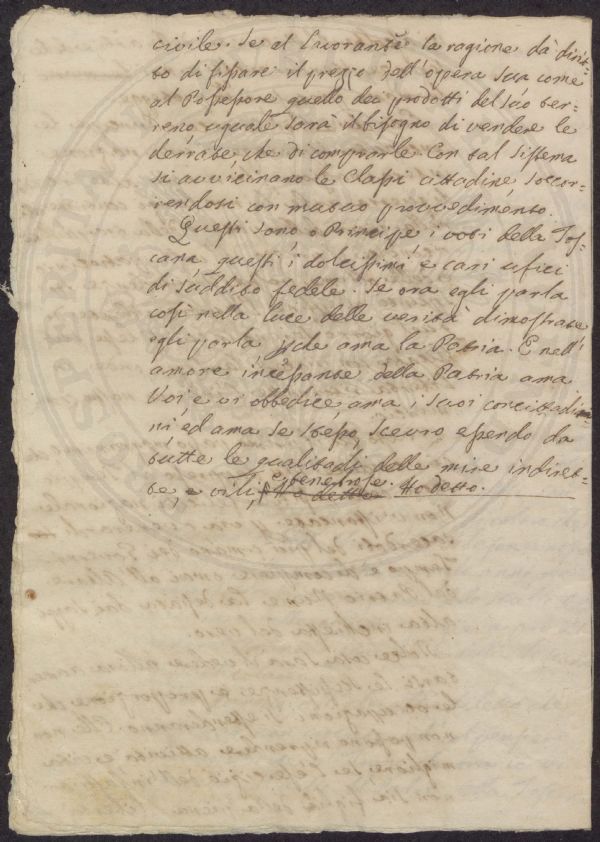 civile. Se al lavorante la ragione dà dirit-
to di fissare il prezzo dell'opera sua come
al Possessore quello dei prodotti del suo ter-
reno, uguale sarà il bisogno di vendere le
derrate, che di comprarle. Con tal sistema
si avvicinano le Classi cittadine, soccor-
rendosi con mutuo provvedimento.
Questi sono, o Principe, i voti della Tos-
cana, questi i dolcissimi, e cari ufici
di suddito fedele. Se ora egli parla
così nella luce delle verità dimostrate
egli parla perché ama la Patria. E nell'
amore incessante della Patria ama
Voi, e vi obbedice, ama i suoi concittadi-
ni, ed ama se stesso, scevro essendo da
tutte le qualitadi delle mire indiret-
te, e vili, e tenebrose. Ho detto.